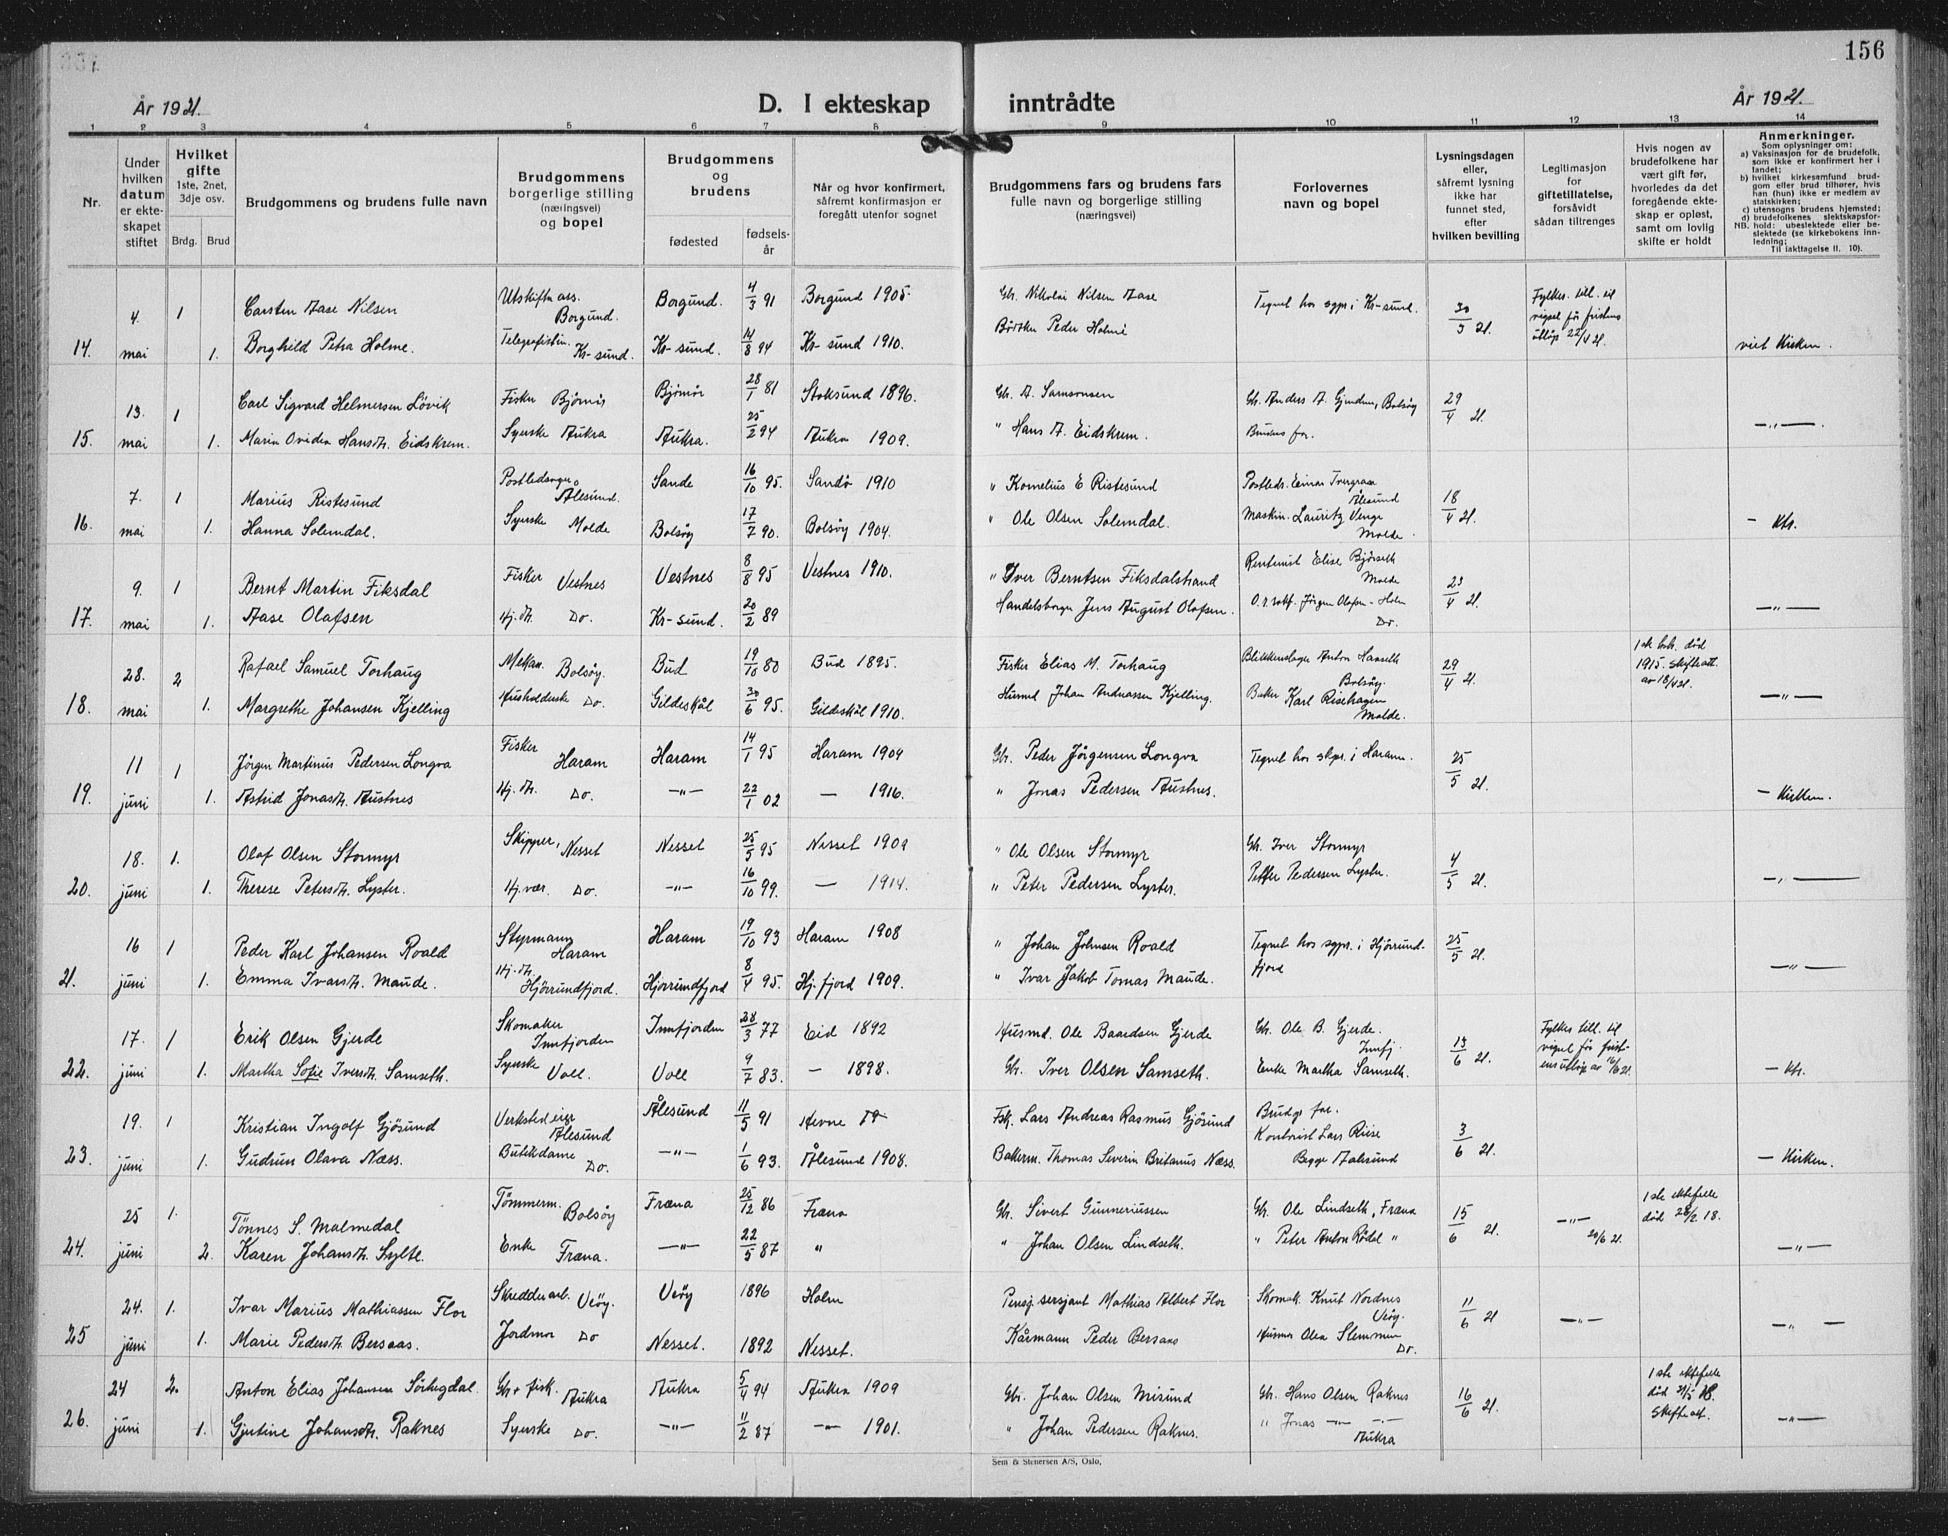 156
År 1921.
D. I ekteskap inntrådte
År 1921.
1 2 3 4 5 6 7 8 9 10 11 12 13 14
Nr.
Under hvilken datum er ekte-skapet stiftet
Hvilket gifte 1ste, 2net, 3dje osv.
Brdg. Brud
Brudgommens og brudens fulle navn
Brudgommens borgerlige stilling (næringsvei) og bopel
Brudgommens og brudens
fødested
fødsels-år
Når og hvor konfirmert, såfremt konfirmasjon er foregått utenfor sognet
Brudgommens fars og brudens fars fulle navn og borgerlige stilling (næringsvei)
Forlovernes navn og bopel
Lysningsdagen eller, såfremt lysning ikke har funnet sted, efter hvilken bevilling
Legitimasjon for giftetillatelse, forsåvidt sådan tiltrenges
Hvis nogen av brudefolkene har vært gift før, hvorledes da det foregående ekte-skap er opløst, samt om lovlig skifte er holdt
Anmerkninger.
Som oplysninger om:
a) Vaksinasjon for de brudefolk, som ikke er konfirmert her i landet;
b) hvilket kirkesamfund brud-gom eller brud tilhører, hvis han (hun) ikke er medlem av statskirken;
c) utensogns brudens hjemsted;
d) brudefolkenes slektskapsfor-hold: ubeslektede eller be-slektede (se kirkebokens inn-ledning;
NB. Til iakttagelse II. 10).
4. 1 Carsten Aase Nilsen Utskiftn ass. Borgund. Borgund. 4/3 91 Borgund 1905. Gb. Nikolai Nilsen Aase Tegnet hos sgpr. i Kr-sund. 30/3 21. Fylkes. till. til vigsel før fristens utløp 22/4 21.
14. mai 1. Borghild Petra Holme. Telegrafistin. Kr-sund. Kr-sund. 14/8 94 Kr-sund 1910. Peder Holme viet Kirken.
13. 1 Carl Sigvard Helmersen Lövik Fisker Bjørnör Bjørnör 28/1 81 Stoksund 1896. Gb. A. Samsonsen Gb. Anders A. Gjendem, Bolsøy 29/4 21.
15. mai 1. Marin Ovidia Hansdt. Eidskrem. Syerske Aukra Aukra. 25/2 94 Aukra 1909. " Hans A. Eidskrem. Brudens far. —"—
7. 1 Marius Ristesund Ålesund. Sande 16/10 95. Sandö 1910 " Kornelius E Ristesund Postleds. Einar Ålesund 18/4 21.
16. mai 1. Hanna Solemdal. Syerske Molde Bolsøy 17/7 90. Bolsøy 1904. " Ole Olsen Solemdal. Maskin. Lauritz Venge Molde. — Ktr.
9. 1 Bernt Martin Fiksdal Fisker Vestnes Vestnes 8/8 95 Vestnes 1910. " Iver Berntsen Fiksdalstrand Rentenist Elise Bjørseth Molde 23/4 21.
17. mai 1. Aase Olafsen Hj. dt. Do. Kr-sund. 20/2 89 Handelsborger Jens August Olafsen. O.r.sakf. Jörgen Olafsen-Holm Do. —"—
28. 2 Rafael Samuel Torhaug Mekan. Bolsøy. Bud 19/10 80 Bud 1895. Fisker Elias M. Torhaug Blikkenslager Anton Hanseth Bolsøy. 29/4 21. 1ste hst. död 1915. Skifteatt. av 18/4 21.
18. mai 1. Margrethe Johansen Kjelling Husholderske Do. Gildeskål 30/6 95. Gildeskål 1910. Husmd Johan Andreassen Kjelling. Baker Karl Risehagen Molde. —"—
11 1 Jörgen Martinus Pedersen Longva Fisker Haram Haram 14/1 95 Haram 1909 Gb. Peder Jörgensen Longva Tegnet hos skpr. i Haram. 25/5 21.
19. juni 1. Astrid Jonasdt. Austnes Hj. dt. Do. —"— 22/1 02 — 1916. " Jonas Pedersen Austnes. — Kirken.
18. 1. Olaf Olsen Stormyr Skipper, Nesset Nesset 25/5 95 Nesset 1909 " Ole Olsen Stormyr Gb. Iver Stormyr 4/5 21.
20. juni 1. Therese Petersdt. Lyster. Hj. vær. Do. —"— 16/10 99. — 1914. " Peter Pedersen Lyster. Petter Pedersen Lyster. —"—
16 1 Peder Karl Johansen Roald Styrmann Haram Haram 19/10 93 Haram 1908 " Johan Johnsen Roald Tegnet hos sgpr. i Hjörund-fjord 25/5 21.
21. juni 1. Emma Ivarsdt. Maude. Hj. dt. Hjörrundfjord. Hjorrundfjord 8/4 95. Hj.fjord 1909. " Ivar Jakob Tomas Maude. —"—
17. 1 Erik Olsen Gjerde Skomaker Innfjorden Innfjorden 28/3 77 Eid 1892 Husmd. Ole Baardsen Gjerde Gb. Ole B. Gjerde. Innfj. 13/6 21. Fylkes till. til vigsel før frist-ens utløp av 16/6 21.
22. juni 1. Martha Sofie Iversdt. Samseth. Syerske Voll. Voll 9/7 83. — 1898. Gb. Iver Olsen Samseth. Enke Martha Samseth. — Ktr.
19. 1 Kristian Ingolf Gjösund Verksted eier Ålesund Ålesund 11/5 91 Hevne Fsk. Lars Andreas Rasmus Gjösund Brudgs far. 3/6 21.
23. juni 1. Gudrun Olava Næss. Butikdame Do. —"— 1/6 93. Ålesund 1908. Bakerm. Thomas Severin Britanus Næss. Kontorist Lars Riise Begge Aalesund — Kirken.
25 1. Tönnes S. Malmedal Tömmerm. Bolsøy Fræna 25/12 86 Fræna Gb. Sivert Gunneriussen Gb. Ole Lindseth, Fræna 15/6 21. —"— 20/6 21. 1ste ektefelle död 28/2 18.
24. juni 2. Karen Johansdt. Sylte. Enke Fræna. —"— 22/5 87 " " Johan Olsen Lindseth. " Peter Anton Rödal " —"—
24. 1. Ivar Marius Mathiassen Flor Skredderarb. Veöy. Veöy 1896 Holm Pensj. sersjant Mathias Albert Flor Skomak. Knut Nordnes Veöy. 11/6 21 —"—
25 juni 1. Marie Pedersdt. Bersaas. Jordmor Do Nesset. 1892 Nesset. Kårmann Peder Bersaas Olea Slemmen Do. —"—
24 2. Anton Elias Johansen Gb + fisk. Aukra Aukra 5/4 94 Aukra 1909 Gb. Johan Olsen Misund Gb. Hans Olsen Raknes 16/6 21. 1ste ektefelle död Skifteatt.
26. juni 1. Gjertine Johansdt. Raknes Syerske Do. —"— 11/2 87 —"— 1901. " Johan Pedersen Raknes. " Jonas —"— —"— Aukra —"—
Sem & Stenersen A/S, Oslo.